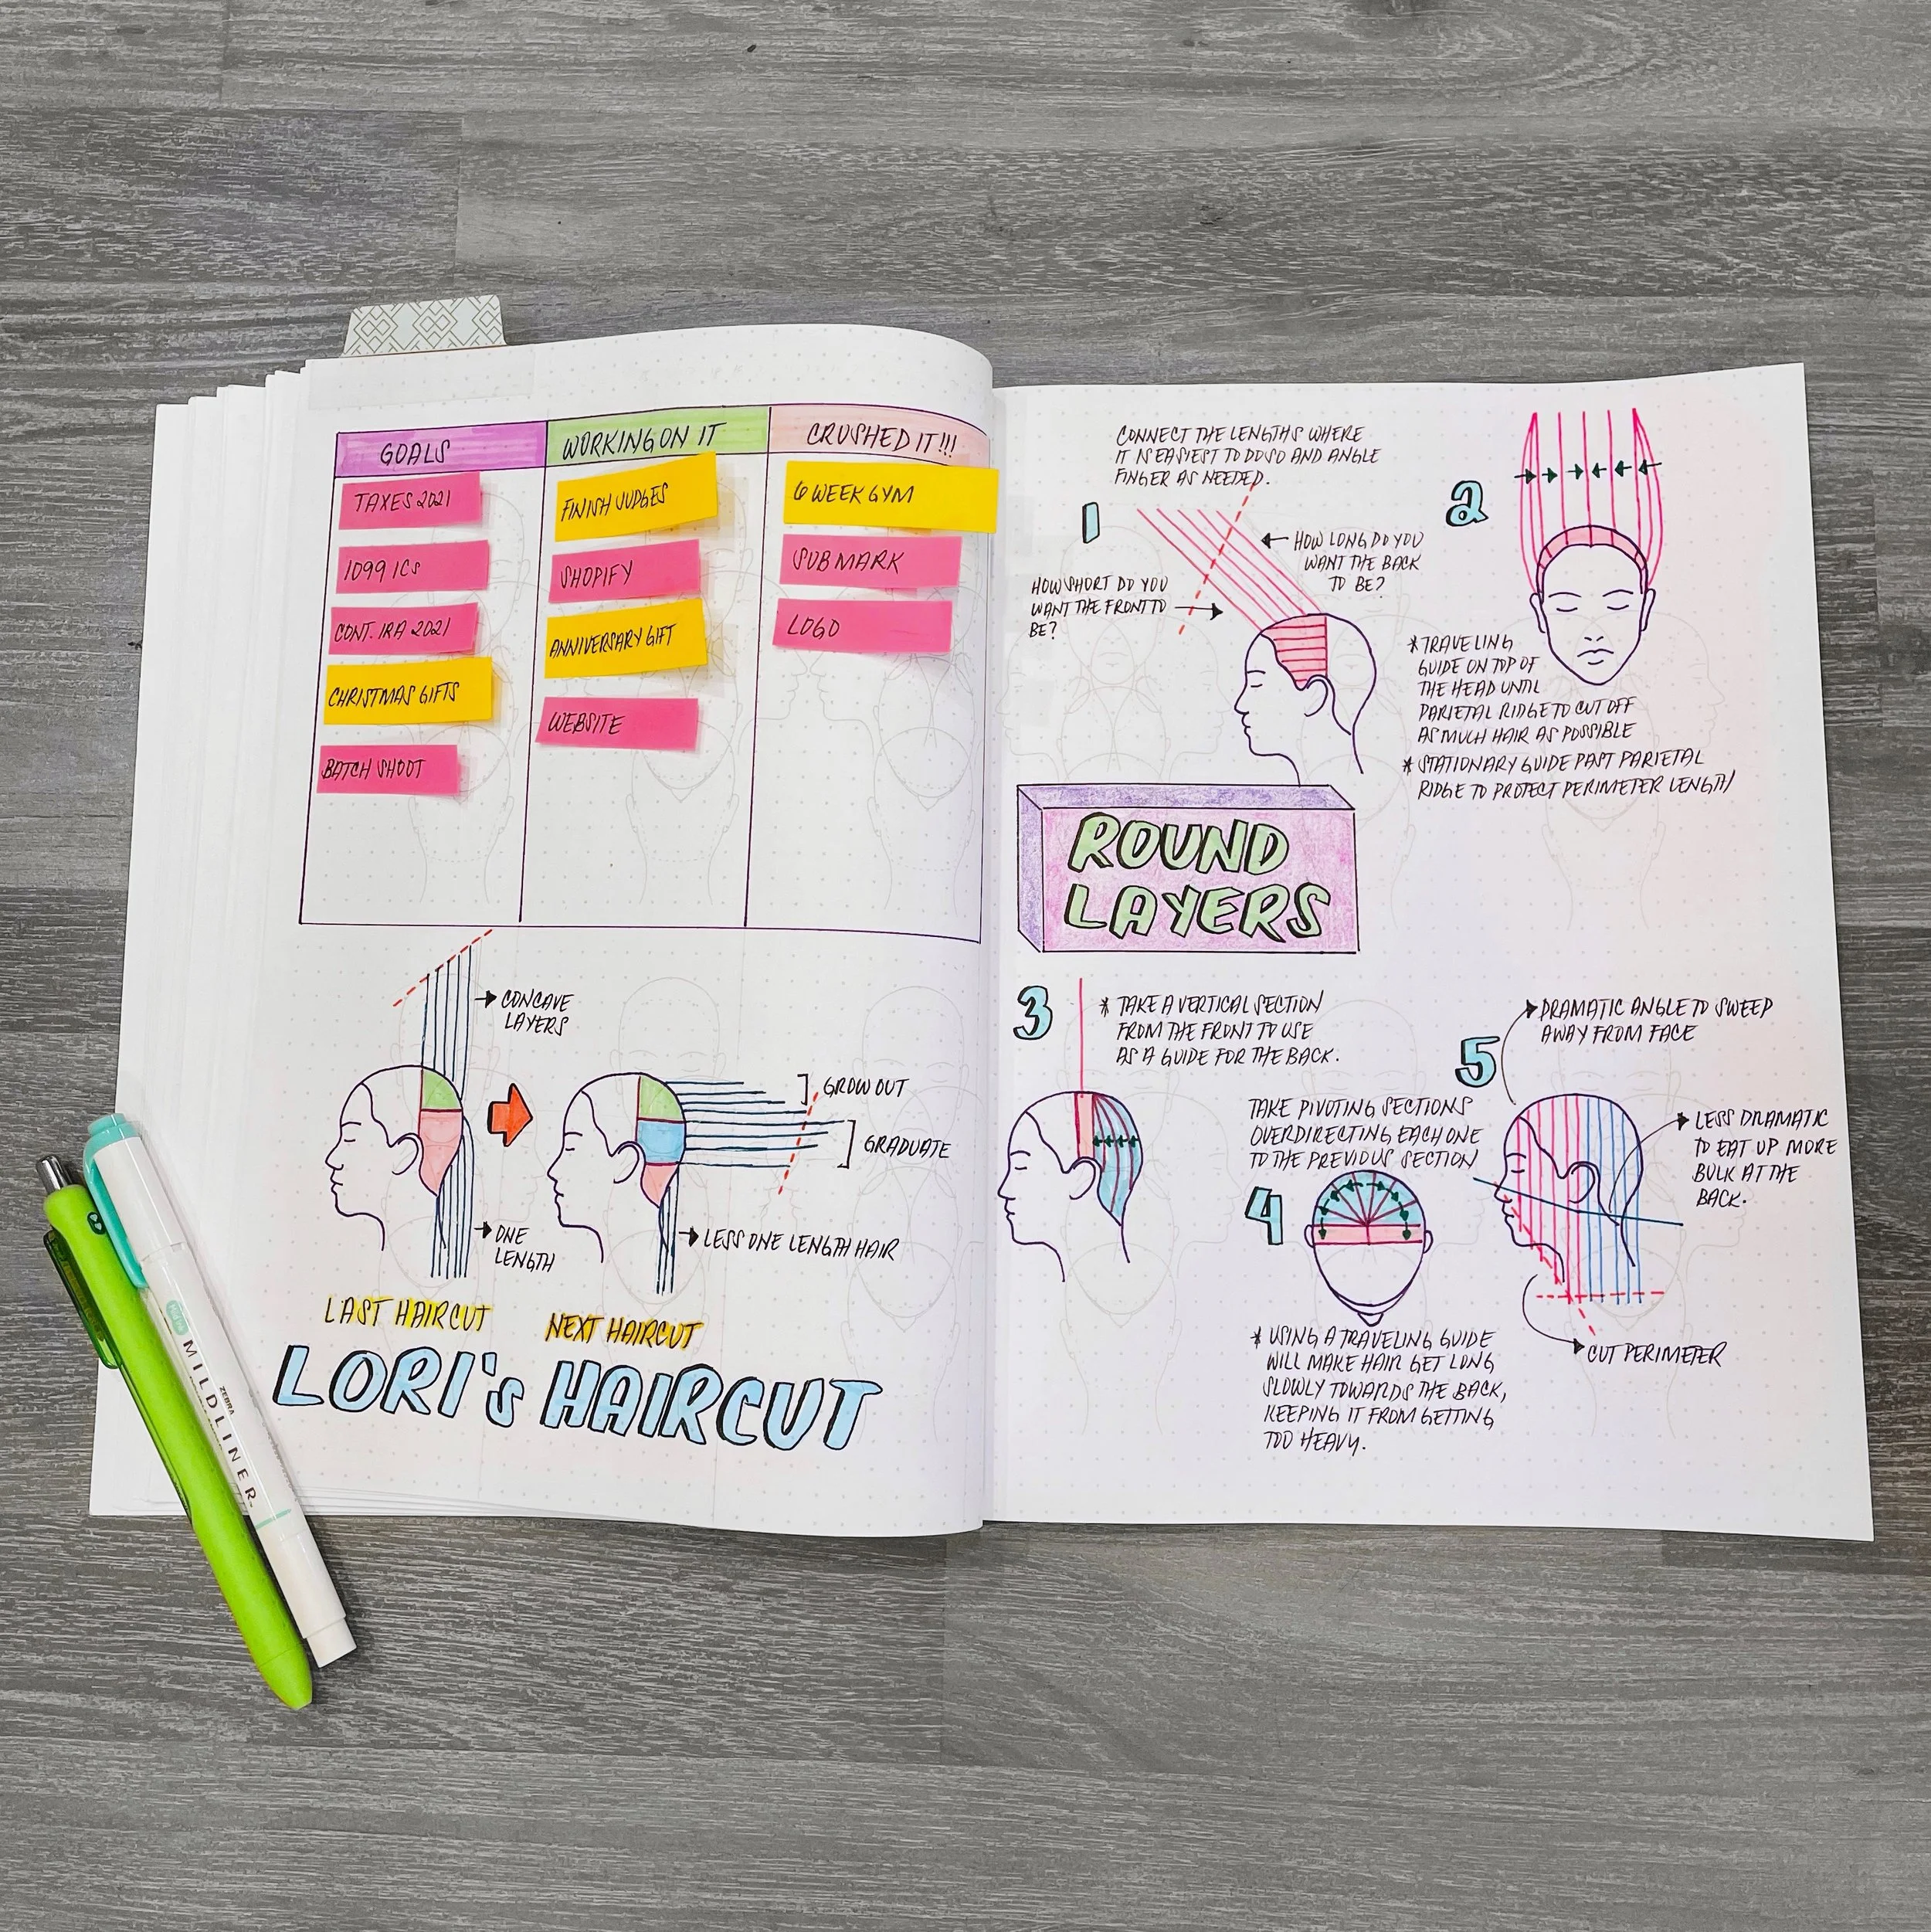 GOALS
TAXES 2021
1099 ICs
CONT. IRA 2021
CHRISTMAS GIFTS
BATCH SHOOT
WORKING ON IT
FINISH JUDGES
SHOPIFY
ANNIVERSARY GIFT
WEBSITE
CRUSHED IT!!!
6 WEEK GYM
SUB MARK
LOGO
CONCAVE
LAYERS
ONE
LENGTH
LAST HAIRCUT
GROW OUT
GRADUATE
LESS ONE LENGTH HAIR
NEXT HAIRCUT
LORI's HAIRCUT
CONNECT THE LENGTHS WHERE
IT IS EASIEST TO DO SO AND ANGLE
FINGER AS NEEDED.
1
HOW LONG DO YOU
WANT THE BACK
TO BE?
HOW SHORT DO YOU
WANT THE FRONT TO
BE?
2
* TRAVELING
GUIDE ON TOP OF
THE HEAD UNTIL
PARIETAL RIDGE TO CUT OFF
AS MUCH HAIR AS POSSIBLE
* STATIONARY GUIDE PAST PARIETAL
RIDGE TO PROTECT PERIMETER LENGTH
ROUND
LAYERS
3
* TAKE A VERTICAL SECTION
FROM THE FRONT TO USE
AS A GUIDE FOR THE BACK.
TAKE PIVOTING SECTIONS
OVERDIRECTING EACH ONE
TO THE PREVIOUS SECTION
4
* USING A TRAVELING GUIDE
WILL MAKE HAIR GET LONG
SLOWLY TOWARDS THE BACK,
KEEPING IT FROM GETTING
TOO HEAVY.
5
DRAMATIC ANGLE TO SWEEP
AWAY FROM FACE
LESS DRAMATIC
TO EAT UP MORE
BULK AT THE
BACK.
CUT PERIMETER
ZEBRA
MILDLINER